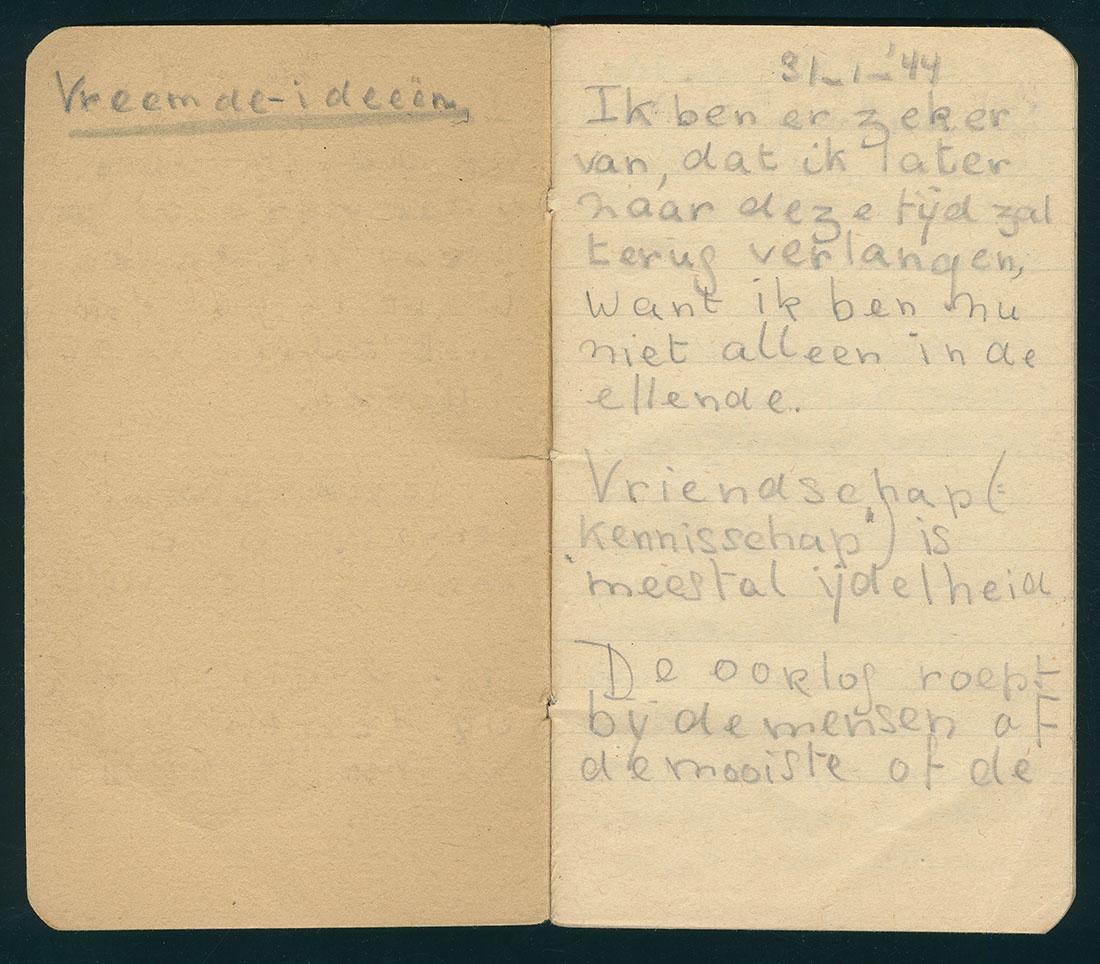 Vreemde-ideeën
31-1-'44
Ik ben er zeker
van, dat ik later
naar deze tijd zal
terug verlangen,
want ik ben nu
niet alleen in de
ellende.
Vriendschap (=
"kennisschap") is
meestal ijdelheid
De oorlog roept
bij de mensen of
de mooiste of de